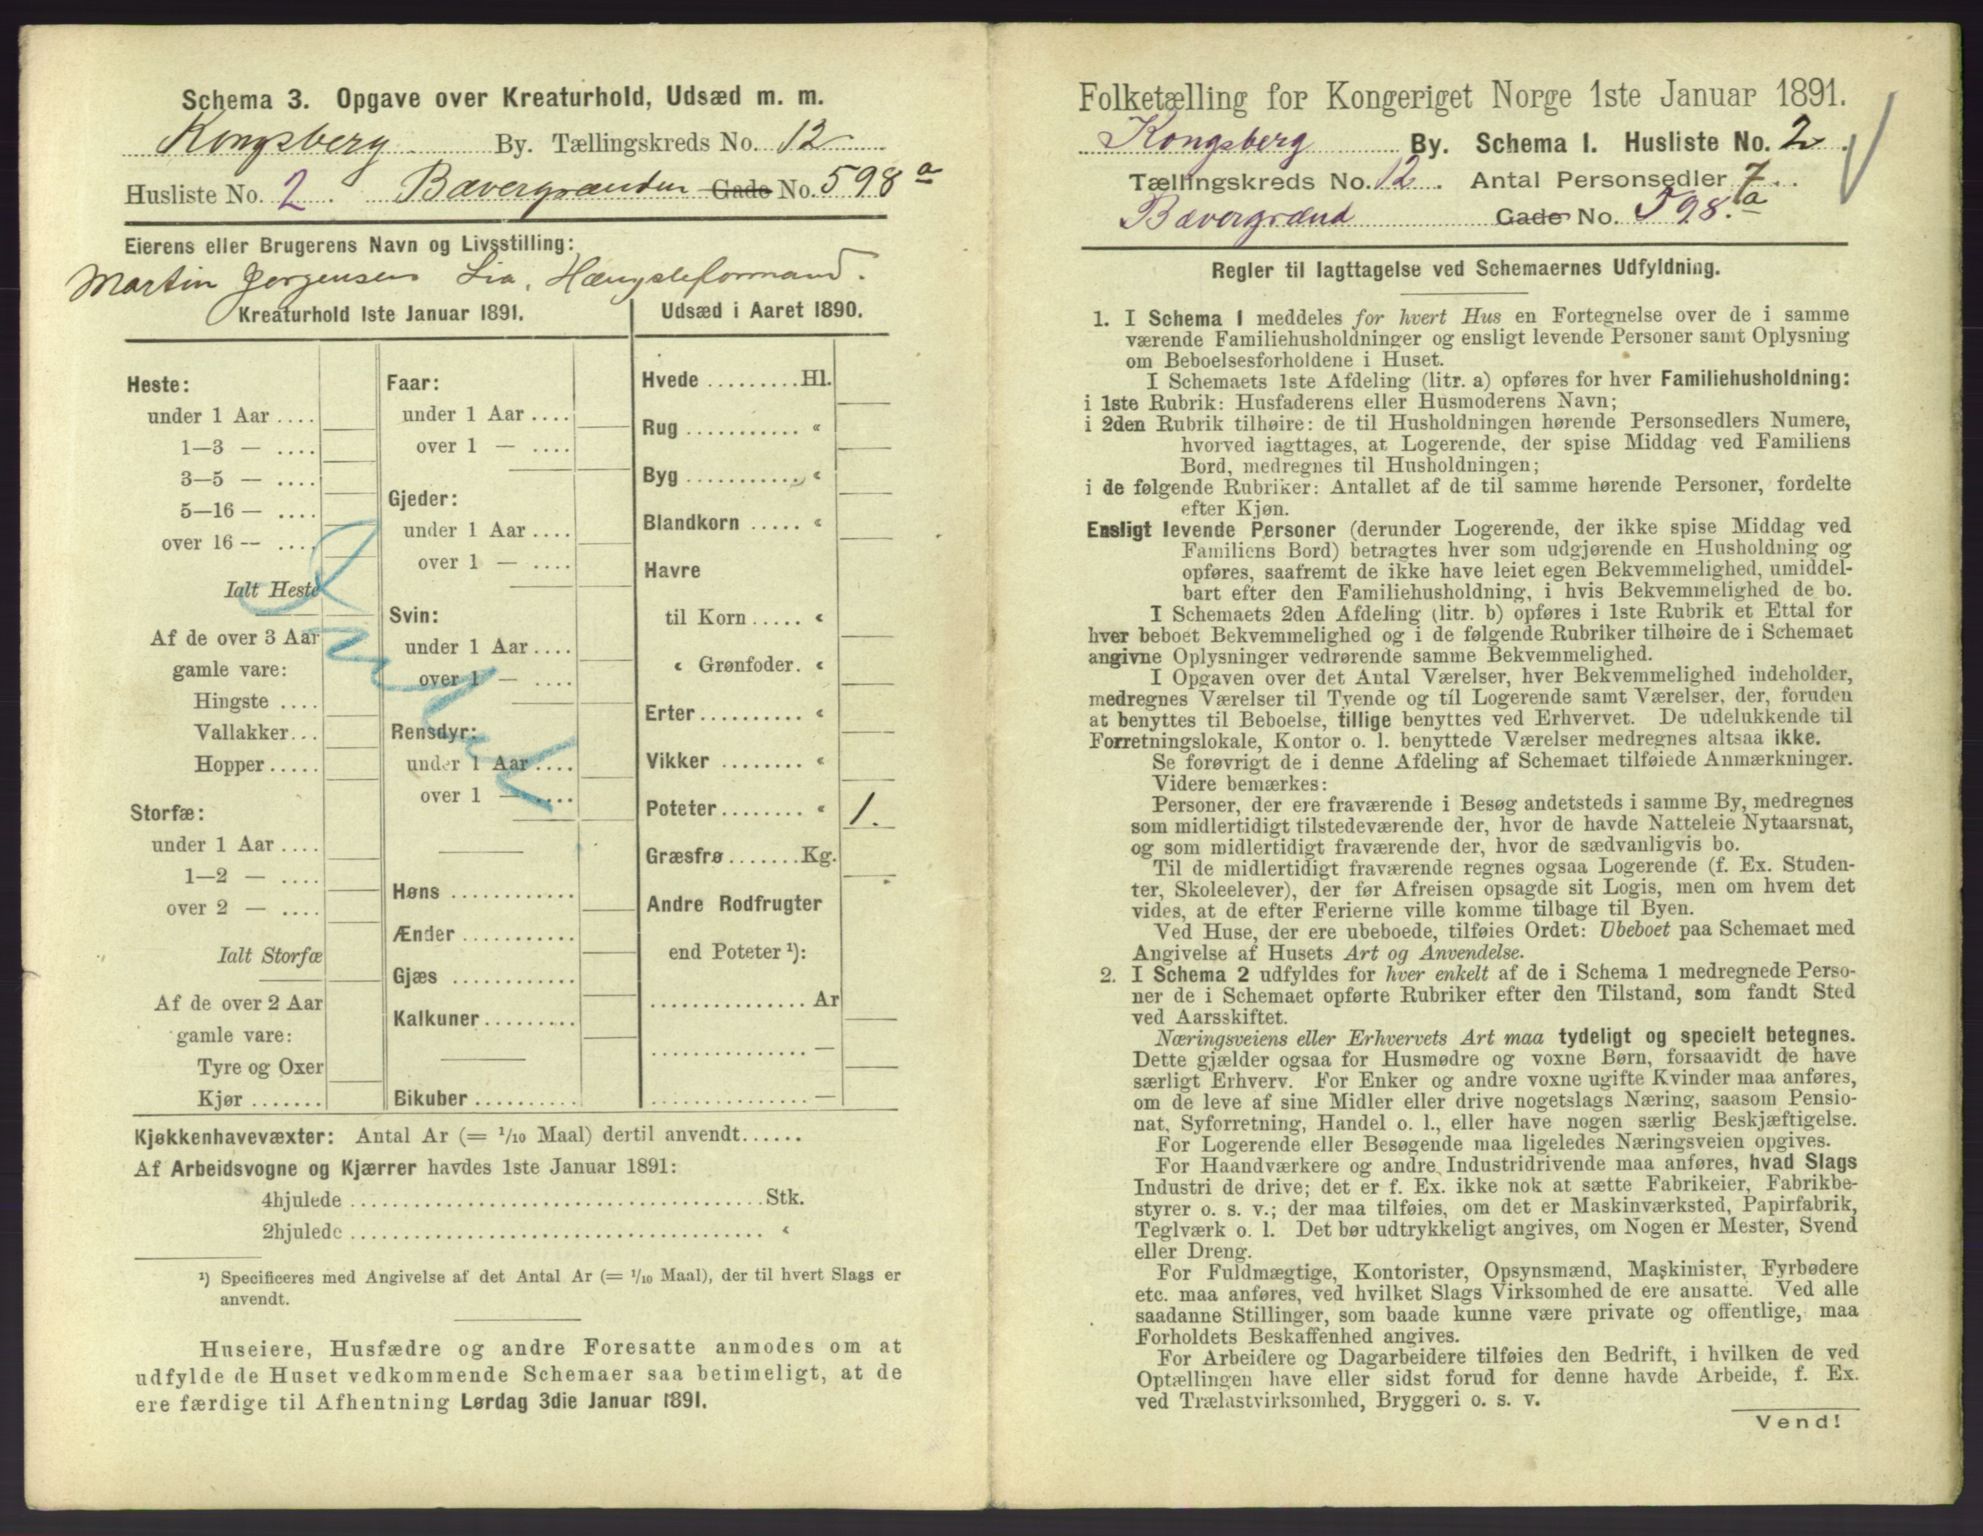 Schema 3. Opgave over Kreaturhold, Udsæd m. m.
Kongsberg By. Tællingskreds No. 12
Husliste No. 2. Bævergrænden Gade No. 598 a
Eierens eller Brugerens Navn og Livsstilling:
Martin Jørgensen Lia, Hængsleformand.
Kreaturhold 1ste Januar 1891.
Heste:
under 1 Aar ....
1—3 — ....
3—5 — ....
5—16 — ....
over 16 — ....
Ialt Heste
Af de over 3 Aar
gamle vare:
Hingste ....
Vallakker...
Hopper.....
Storfæ:
under 1 Aar ....
1—2 — ....
over 2 — ....
Ialt Storfæ
Af de over 2 Aar
gamle vare:
Tyre og Oxer
Kjør .......
Faar:
under 1 Aar ....
over 1 — ....
Gjeder:
under 1 Aar ....
over 1 — ....
Svin:
under 1 Aar ....
over 1 — ....
Rensdyr:
under 1 Aar ....
over 1 — ....
Høns ............
Ænder ...........
Gjæs ............
Kalkuner.........
Bikuber ..........
Udsæd i Aaret 1890.
Hvede .........Hl.
Rug ........... «
Byg ........... «
Blandkorn ..... «
Havre
til Korn ..... «
« Grønfoder. «
Erter.......... «
Vikker ........ «
Poteter........ « 1.
Græsfrø .......Kg.
Andre Rodfrugter
end Poteter ¹):
............... Ar
............... —
............... —
Kjøkkenhavevæxter: Antal Ar (= 1/10 Maal) dertil anvendt......
Af Arbeidsvogne og Kjærrer havdes 1ste Januar 1891:
4hjulede ........................................Stk.
2hjulede ........................................ «
¹) Specificeres med Angivelse af det Antal Ar (= 1/10 Maal), der til hvert Slags er
anvendt.
Huseiere, Husfædre og andre Foresatte anmodes om at
udfylde de Huset vedkommende Schemaer saa betimeligt, at de
ere færdige til Afhentning Lørdag 3die Januar 1891.
Folketælling for Kongeriget Norge 1ste Januar 1891.
Kongsberg By. Schema I. Husliste No. 2.
Tællingskreds No. 12. Antal Personsedler 7.
Bævergrænd Gade No. 598. a
Regler til Iagttagelse ved Schemaernes Udfyldning.
1. I Schema I meddeles for hvert Hus en Fortegnelse over de i samme
værende Familiehusholdninger og ensligt levende Personer samt Oplysning
om Beboelsesforholdene i Huset.
I Schemaets 1ste Afdeling (litr. a) opføres for hver Familiehusholdning:
i 1ste Rubrik: Husfaderens eller Husmoderens Navn;
i 2den Rubrik tilhøire: de til Husholdningen hørende Personsedlers Numere,
hvorved iagttages, at Logerende, der spise Middag ved Familiens
Bord, medregnes til Husholdningen;
i de følgende Rubriker: Antallet af de til samme hørende Personer, fordelte
efter Kjøn.
Ensligt levende Personer (derunder Logerende, der ikke spise Middag ved
Familiens Bord) betragtes hver som udgjørende en Husholdning og
opføres, saafremt de ikke have leiet egen Bekvemmelighed, umiddel-
bart efter den Familiehusholdning, i hvis Bekvemmelighed de bo.
I Schemaets 2den Afdeling (litr. b) opføres i 1ste Rubrik et Ettal for
hver beboet Bekvemmelighed og i de følgende Rubriker tilhøire de i Schemaet
angivne Oplysninger vedrørende samme Bekvemmelighed.
I Opgaven over det Antal Værelser, hver Bekvemmelighed indeholder,
medregnes Værelser til Tyende og til Logerende samt Værelser, der, foruden
at benyttes til Beboelse, tillige benyttes ved Erhvervet. De udelukkende til
Forretningslokale, Kontor o. l. benyttede Værelser medregnes altsaa ikke.
Se forøvrigt de i denne Afdeling af Schemaet tilføiede Anmærkninger.
Videre bemærkes:
Personer, der ere fraværende i Besøg andetsteds i samme By, medregnes
som midlertidigt tilstedeværende der, hvor de havde Natteleie Nytaarsnat,
og som midlertidigt fraværende der, hvor de sædvanligvis bo.
Til de midlertidigt fraværende regnes ogsaa Logerende (f. Ex. Studen-
ter, Skoleelever), der før Afreisen opsagde sit Logis, men om hvem det
vides, at de efter Ferierne ville komme tilbage til Byen.
Ved Huse, der ere ubeboede, tilføies Ordet: Ubeboet paa Schemaet med
Angivelse af Husets Art og Anvendelse.
2. I Schema 2 udfyldes for hver enkelt af de i Schema 1 medregnede Perso-
ner de i Schemaet opførte Rubriker efter den Tilstand, som fandt Sted
ved Aarsskiftet.
Næringsveiens eller Erhvervets Art maa tydeligt og specielt betegnes.
Dette gjælder ogsaa for Husmødre og voxne Børn, forsaavidt de have
særligt Erhverv. For Enker og andre voxne ugifte Kvinder maa anføres,
om de leve af sine Midler eller drive nogetslags Næring, saasom Pensio-
nat, Syforretning, Handel o. l., eller have nogen særlig Beskjæftigelse.
For Logerende eller Besøgende maa ligeledes Næringsveien opgives.
For Haandværkere og andre Industridrivende maa anføres, hvad Slags
Industri de drive; det er f. Ex. ikke nok at sætte Fabrikeier, Fabrikbe-
styrer o. s. v.; der maa tilføies, om det er Maskinværksted, Papirfabrik,
Teglværk o. l. Det bør udtrykkeligt angives, om Nogen er Mester, Svend
eller Dreng.
For Fuldmægtige, Kontorister, Opsynsmænd, Maskinister, Fyrbødere
etc. maa anføres, ved hvilket Slags Virksomhed de ere ansatte. Ved alle
saadanne Stillinger, som baade kunne være private og offentlige, maa
Forholdets Beskaffenhed angives.
For Arbeidere og Dagarbeidere tilføies den Bedrift, i hvilken de ved
Optællingen have eller sidst forud for denne havde Arbeide, f. Ex.
ved Trælastvirksomhed, Bryggeri o. s. v.
Vend!